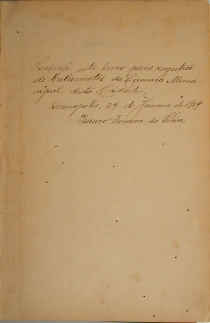 Servirá este livro para registros
de balancetes da Camara Muni
cipal desta Cidade.
29 de Janeiro de 1919
da Silva